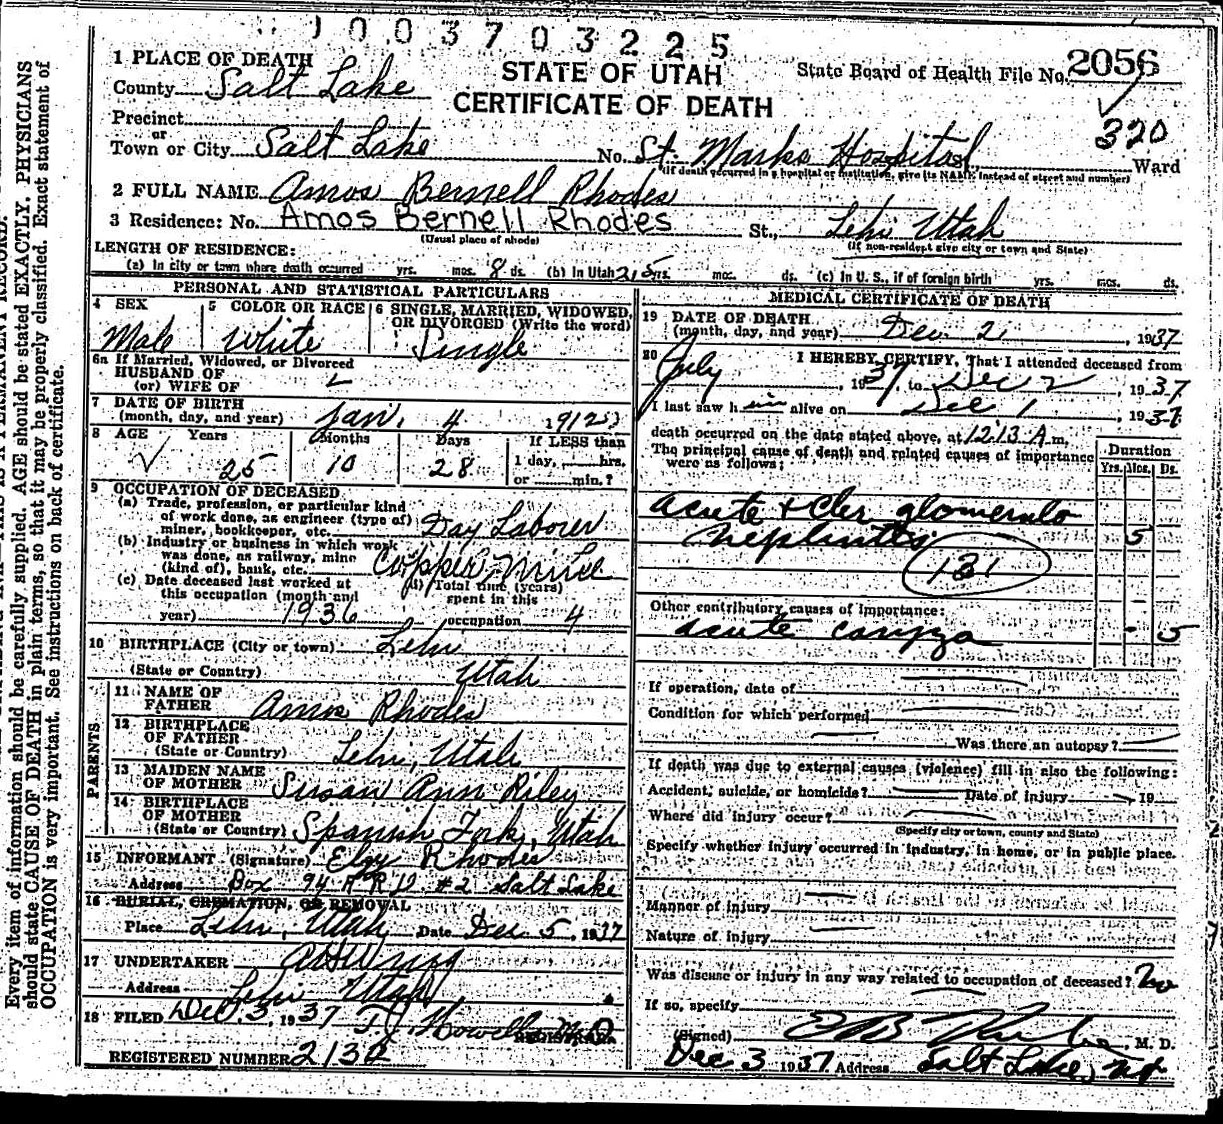 1003703225
1 PLACE OF DEATH
STATE OF UTAH
State Board of Health File No. 2056
County Salt Lake
CERTIFICATE OF DEATH
Precinct
or
320
Town or City Salt Lake No. St. Marks Hospital St. Ward
(If death occurred in a hospital or institution, give its NAME instead of street and number)
2 FULL NAME Amos Bernell Rhodes
3 Residence: No. Amos Bernell Rhodes St., Lehi Utah
(Usual place of abode) (If non-resident give city or town and State)
LENGTH OF RESIDENCE:
(a) In city or town where death occurred yrs. mos. 8 ds. (b) In Utah 25 yrs. mos. ds. (c) In U. S., if of foreign birth yrs. mos. ds.
PERSONAL AND STATISTICAL PARTICULARS
4 SEX
Male
5 COLOR OR RACE
White
6 SINGLE, MARRIED, WIDOWED,
OR DIVORCED (Write the word)
Single
6a If Married, Widowed, or Divorced
HUSBAND OF
(or) WIFE OF
7 DATE OF BIRTH
(month, day, and year) Jan. 4 1912
8 AGE Years Months Days If LESS than
25 10 28 1 day, hrs.
or min.?
9 OCCUPATION OF DECEASED
(a) Trade, profession, or particular kind
of work done, as engineer (type of)
miner, bookkeeper, etc. Day Laborer
(b) Industry or business in which work
was done, as railway, mine
(kind of), bank, etc. Copper Mine
(c) Date deceased last worked at
this occupation (month and
year) 1936
(d) Total time (years)
spent in this
occupation 4
10 BIRTHPLACE (City or town) Lehi
(State or Country) Utah
PARENTS
11 NAME OF
FATHER Amos Rhodes
12 BIRTHPLACE
OF FATHER
(State or Country) Lehi, Utah
13 MAIDEN NAME
OF MOTHER Susan Ann Riley
14 BIRTHPLACE
OF MOTHER
(State or Country) Spanish Fork, Utah
15 INFORMANT (Signature) Rhodes
Address Box 94 R R D #2 Salt Lake
16 BURIAL, CREMATION, OR REMOVAL
Place Lehi, Utah Date Dec 5, 1937
17 UNDERTAKER
Address Lehi Utah
18 FILED Dec. 3, 1937 T. J. Howells M.D.
REGISTERED NUMBER 2132
MEDICAL CERTIFICATE OF DEATH
19 DATE OF DEATH
(month, day, and year) Dec 2, 1937
20 I HEREBY CERTIFY, That I attended deceased from
July, 1937, to Dec 2, 1937
I last saw him alive on Dec 1, 1937
death occurred on the date stated above, at 12:13 A m.
The principal cause of death and related causes of importance
were as follows:
Duration
Yrs. Mos. Ds.
Acute + Chr glomerulo
Nephritis 5
131
Other contributory causes of importance:
acute coryza - 5
If operation, date of
Condition for which performed
Was there an autopsy?
If death was due to external causes (violence) fill in also the following:
Accident, suicide, or homicide? Date of injury 19
Where did injury occur?
(Specify city or town, county and State)
Specify whether injury occurred in industry, in home, or in public place.
Manner of injury
Nature of injury
Was disease or injury in any way related to occupation of deceased? No
If so, specify
(Signed) M. D.
Dec 3 1937 Address Salt Lake, Ut
Every item of information should be carefully supplied. AGE should be stated EXACTLY. PHYSICIANS
should state CAUSE OF DEATH in plain terms, so that it may be properly classified. Exact statement of
OCCUPATION is very important. See instructions on back of certificate.